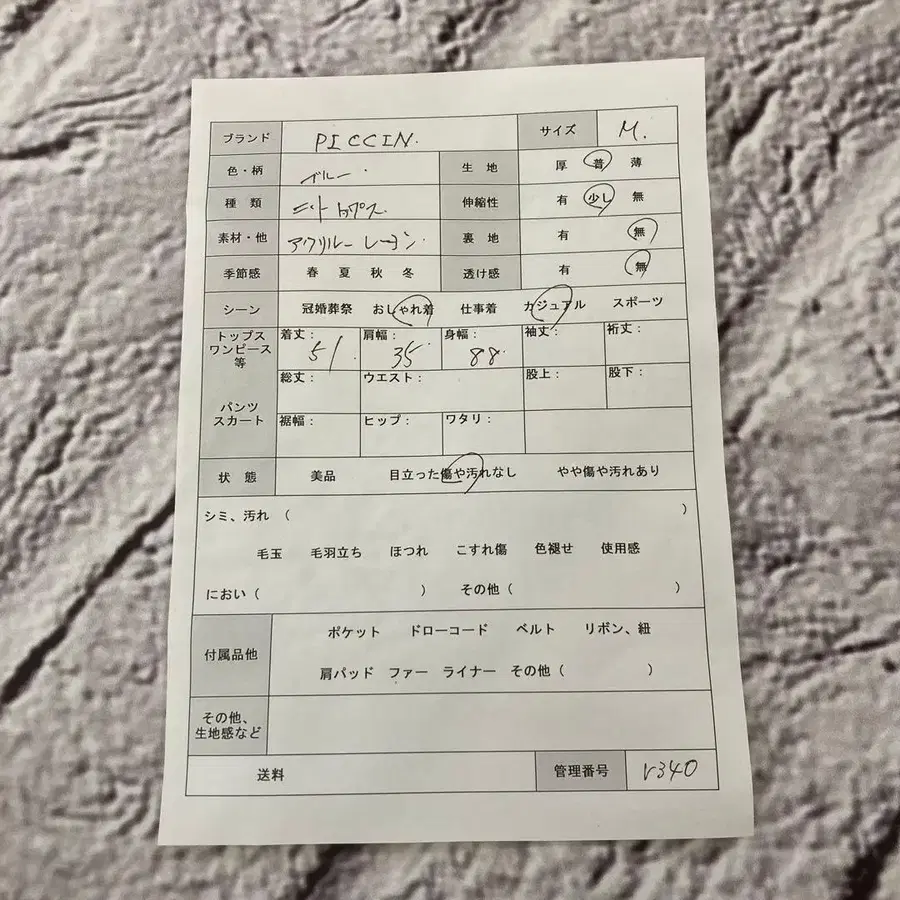 ブランド PICCIN. サイズ M.
色・柄 ブルー 生地 厚 普 薄
種類 ニットトップス 伸縮性 有 少し 無
素材・他 アクリル レーヨン 裏地 有 無
季節感 春 夏 秋 冬 透け感 有 無
シーン 冠婚葬祭 おしゃれ着 仕事着 カジュアル スポーツ
トップス
ワンピース
等
着丈: 51. 肩幅: 35 身幅: 88 袖丈: 裄丈:
総丈: ウエスト: 股上: 股下:
パンツ
スカート
裾幅: ヒップ: ワタリ:
状態 美品 目立った傷や汚れなし やや傷や汚れあり
シミ、汚れ ( )
毛玉 毛羽立ち ほつれ こすれ傷 色褪せ 使用感
におい ( ) その他 ( )
付属品他 ポケット ドローコード ベルト リボン、紐
肩パッド ファー ライナー その他 ( )
その他、
生地感など
送料 管理番号 r340